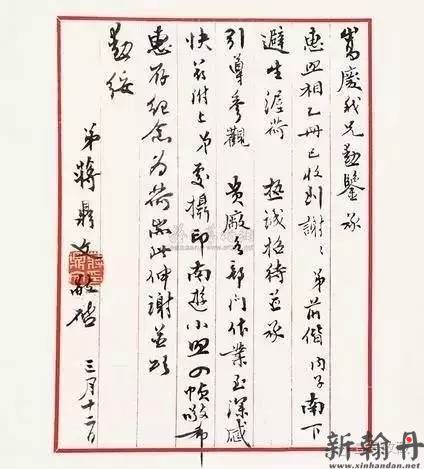 嵩慶我兄勛鑒承
惠照相乙冊已收到謝々弟前偕內子南下
避生渥荷 極誠招待並承
引導參觀 貴廠各部門作業至深感
快茲附上弟處攝印南遊小照四幀敬希
惠存紀念為荷耑此伸謝並頌
勛綏
弟蔣鼎文敬啟
三月十二日
新翰丹
www.xinhandan.com